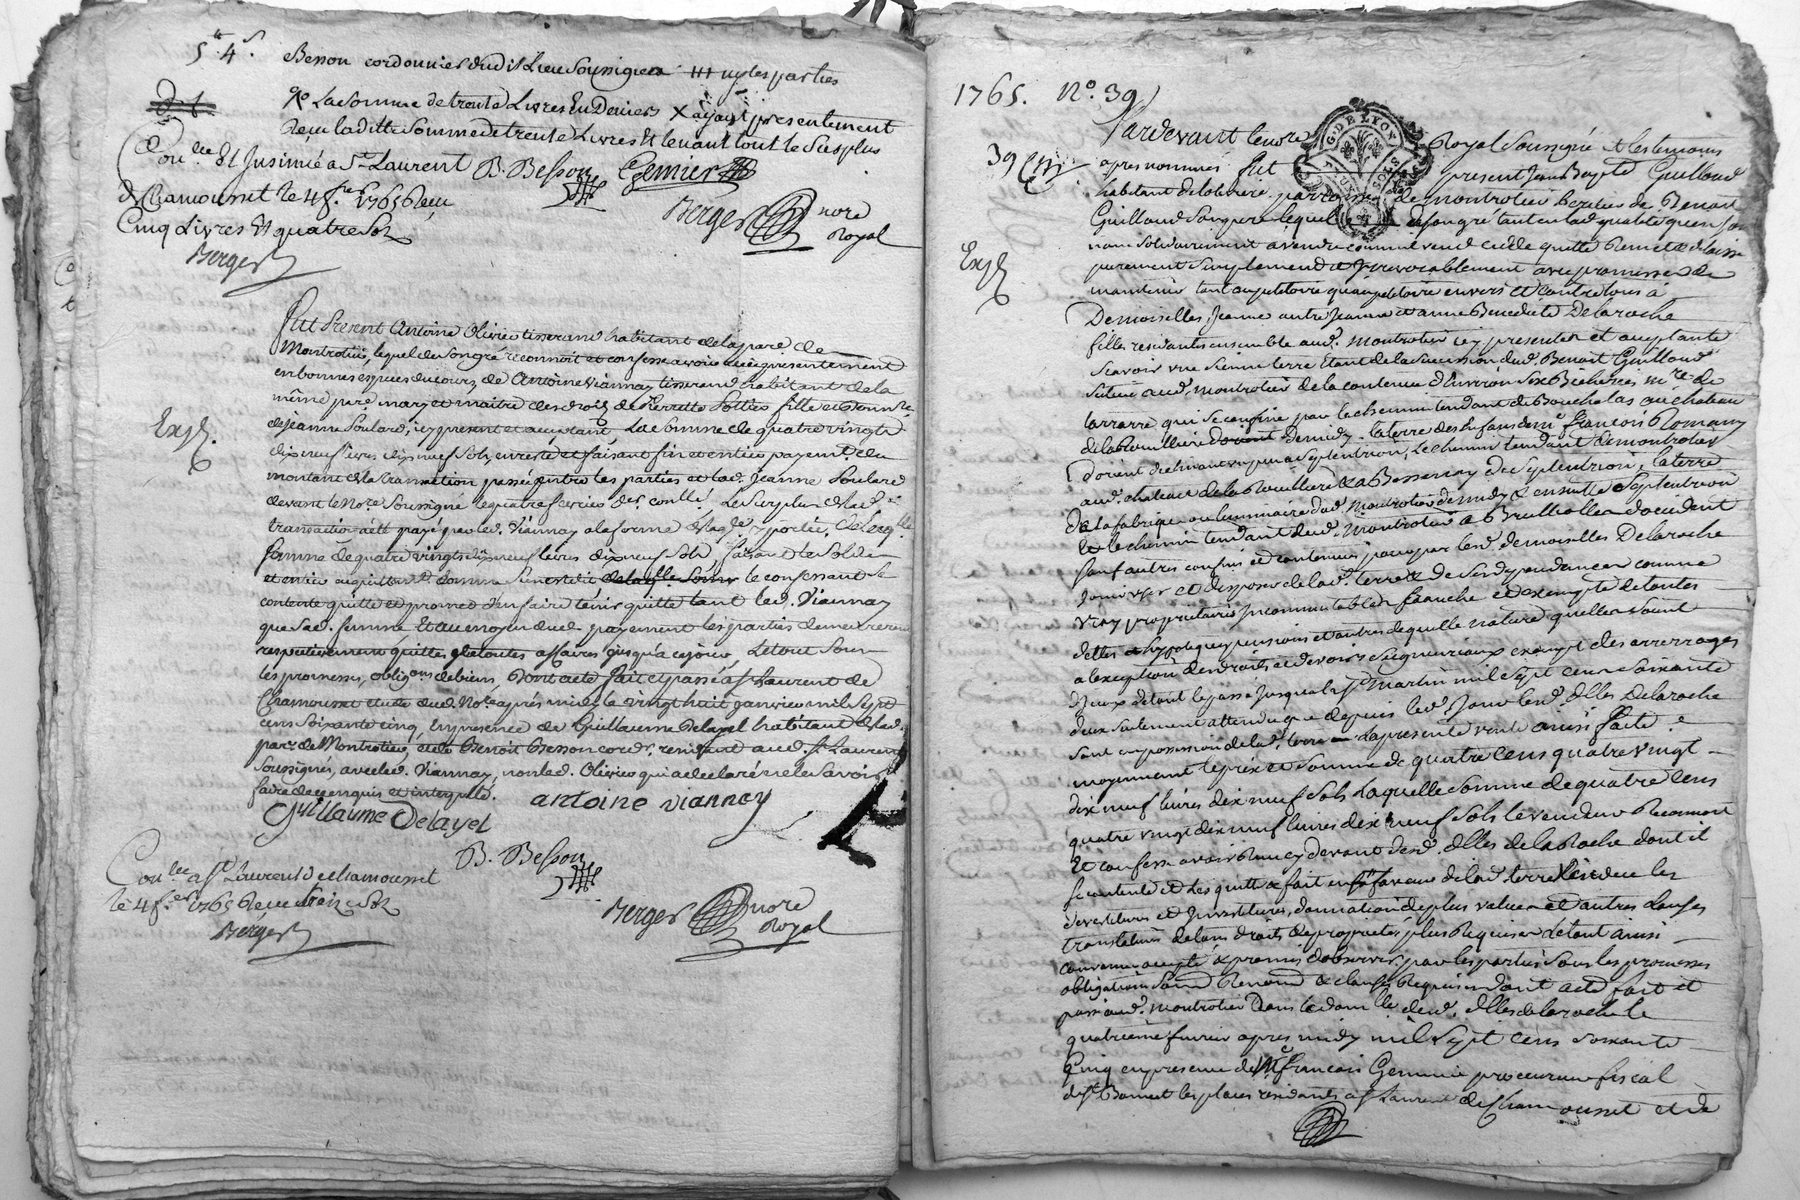 5.tt 4.s
Besson cordonnier dudit Lieu Soussignez les parties
La Somme de trente Livres En Deniers X ayant presentement
Receu laditte Somme de trente Livres Et le vant tout le Surplus
Con.lle Et Insinué a St Laurent B. Besson Gemier
de Chamousset le 4 f.er 1765 Receu
Cinq Livres Et quatre Sols
Berger nore Royal
Berger
fut Present Antoine Olivier tisserand habitant de la par.e de
Montrotier, lequel de Son gré reconnoit et confesse avoir receu presentement
en bonnes especes du cours, de Antoine Viannay tisserand habitant de la
même par.e mary et maitre des droits de Pierrette Sottier fille et
de Jeanne Poulard, icy present et acceptant La Somme de quatre vingts
Expé.
dix neuf Livres dix neuf Sols, en reste et faisant fin et entier payement du
montant de la transaction passée entre les parties et lad. Jeanne Poulard
devant le No.re Soussigné le quatre fevrier Le Surplus de lad.
transaction a été payé par led. Viannay a la forme
Somme de quatre vingts dix neuf Livres dix neuf Sols faisant le Solde
et entier le confessant Se
contente quitte et promet d'en faire tenir quitte tant led. Viannay
que Sad. femme Et au moyen dud. payement les parties demeureront
respectivement quittes de toutes affaires jusqu'a ce jour, Le tout Sous
les promesses, oblig.ons de biens, Dont acte fait et passé a St Laurent de
Chamousset etude dud. No.re après midy le vingt huit janvier mil Sept
cens Soixante cinq, En presence de Guillaume Delayel habitant de lad.
par.e de Montrotier, et de Benoit Besson cord.r residant aud. St Laurent
Soussignés, avec led. Viannay, non led. Olivier qui a declaré ne le Savoir
faire de ce enquis et interpellé.
Guillaume Delayel antoine viannay
B. Besson
Con.lle a St Laurent de Chamousset
le 4 f.er 1765 Receu treize Sols
Berger
Berger nore Royal
1765. No. 39
G. DE LYON
DEUX SOLS
Pardevant le no.re Royal Soussigné et les temoins
39
apres nommés fut present Jean Bapte Guilloud
habitant de parroisse de Montrotier heritier de Benoit
Guilloud Son pere lequel de Son gré tant en lad. qualité qu'en Son
nom Solidairement a vendu comme vend cedde quitte Remet et delaisse
Expé
purement Simplement et Irrevocablement avec promesse de
maintenir tant au petitoire qu'au petitoire envers et contre tous à
Demoiselles Jeanne autre Jeanne et anne Benedicte Delaroche
filles residantes ensemble aud. Montrotier icy presentes et acceptante
Scavoir une Sienne terre Etant de la Succession dud. Benoit Guilloud
Scituée aud. Montrotier de la contenue d'Environ Six Bicherées m.re de
Larrare qui Se confine par le chemin tendant de Bouchalas au chateau
de la Rouilliere de midy. la terre des Enfans de m.e françois Romany
Septentrion, Le chemin tendant de montrotier
aud. chateau de la Rouilliere a Bessenay de Septentrion, La terre
de la fabrique ou luminaire dud. Montrotier de midy & ensuitte Septentrion
Et le chemin tendant dud. Montrotier a Brullioles d'occident
Sauf autres confins et contenues pour par lesd. demoiselles Delaroche
Jouir user et disposer de lad. terre & de Ses dependances comme
vray proprietaires Incommutables franche et exempte de toutes
dettes hypoteques pensions et autres de quelle nature qu'elles Soient
a l'exeption des droits et devoirs Seigneuriaux exempt des arrerages
d'yceux de tout le passé Jusqu'a la St Martin mil Sept cens Soixante
deux Seulement attendu que depuis led. Jour lesd. dlles Delaroche
Sont en possession de lad. terre La presente vente ainsi faitte
moyennant le prix et Somme de quatre Cens quatre vingt
dix neuf livres dix neuf Sols Laquelle Somme de quatre Cens
quatre vingt dix neuf livres dix neuf Sols le vendeur Reconnoit
Et confesse avoir Receu cy devant desd. dlles de laRoche dont il
Se contente et Les quitte & fait en leur faveur de lad. terre les
devestitures et Investitures, donnation de plus value et autres clauses
translatives de tous droits de proprieté plus Requises Le tout ainsi
convenu accepté & promis d'observer par les parties Sous les promesses
obligations Renon & clauses Requises Dont acte fait et
passé aud. Montrotier Dans le dom.lle desd. dlles delaroche le
quatrieme fevrier apres midy mil Sept cens Soixante
Cinq en presence de M.e francois Gemier procureur fiscal
de St Bonnet les places residant a St Laurent de Chamousset et de